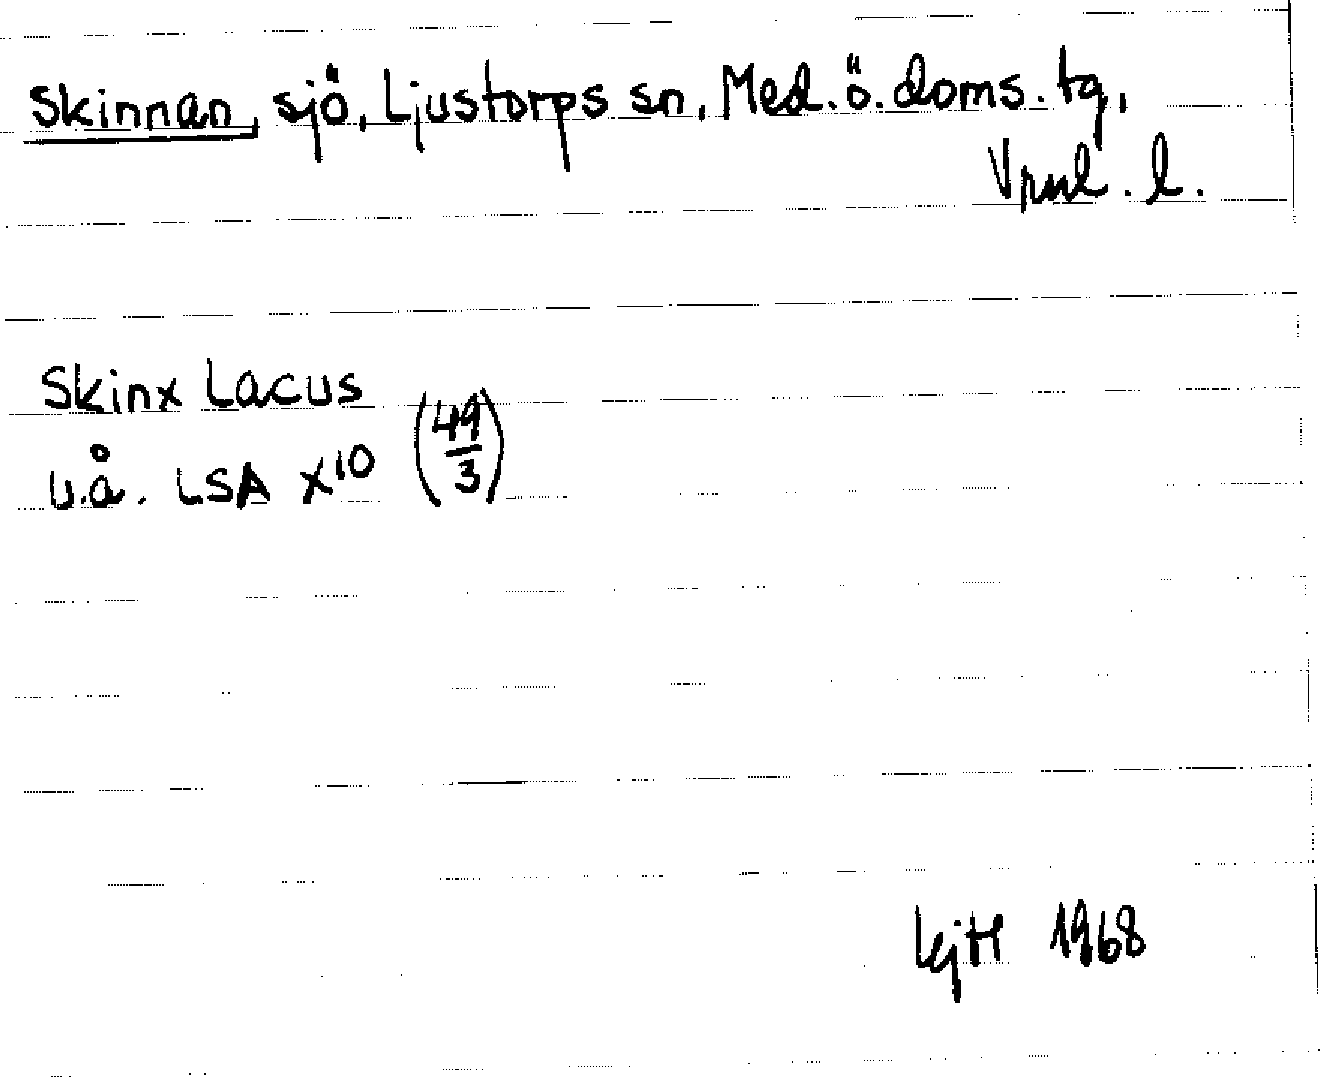 Skinnan, sjö, Ljustorps sn, Med. ö. doms. tg,
Vrnl. l.
Skinx Lacus
u.å. LSA X¹⁰ (49/3)
1968